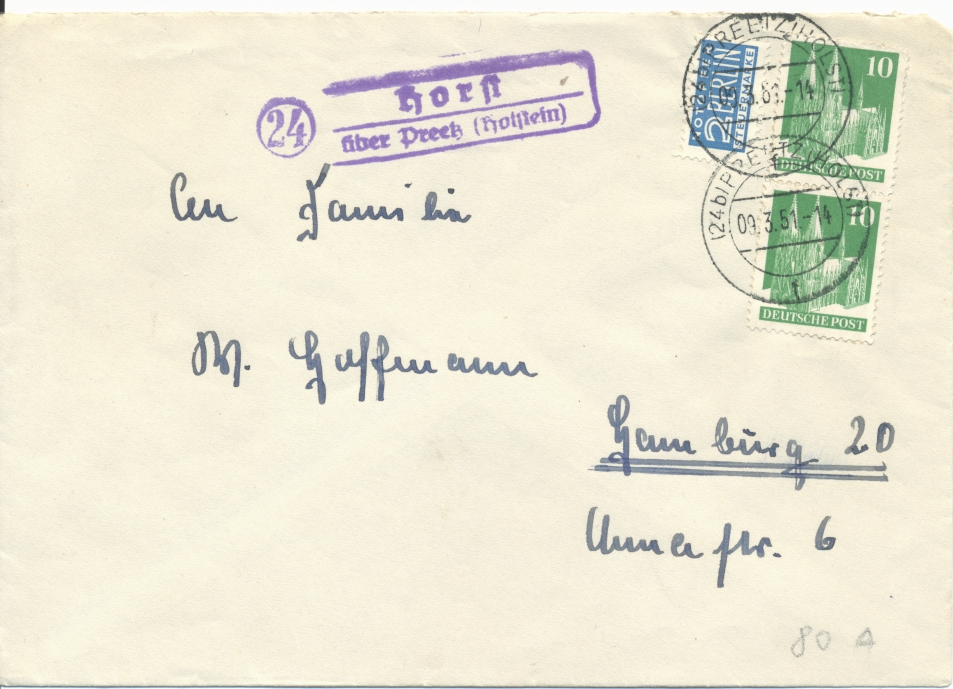 24
Horst
über Preetz (Holstein)
NOTOPFER
2 BERLIN
STEUERMARKE
10
DEUTSCHE POST
(24b) PREETZ (HOLST)
09.3.51.-14
10
DEUTSCHE POST
(24b) PREETZ (HOLST)
09.3.51.-14
f
An Familie
W. Hoffmann
Hamburg 20
Annastr. 6
80 A